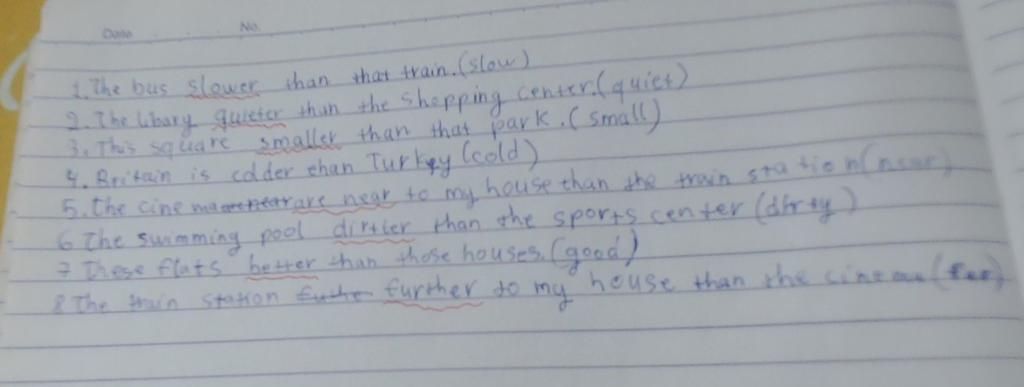 Date No.
1. The bus slower than that train. (slow)
2. The libary quieter than the shopping center. (quiet)
3. This square smaller than that park. (small)
4. Britain is colder than Turkey (cold)
5. The cinema are near to my house than the train station (near)
6 The swimming pool dirtier than the sports center (dirty)
7 These flats better than those houses. (good)
8 The train station further to my house than the cinema (far)